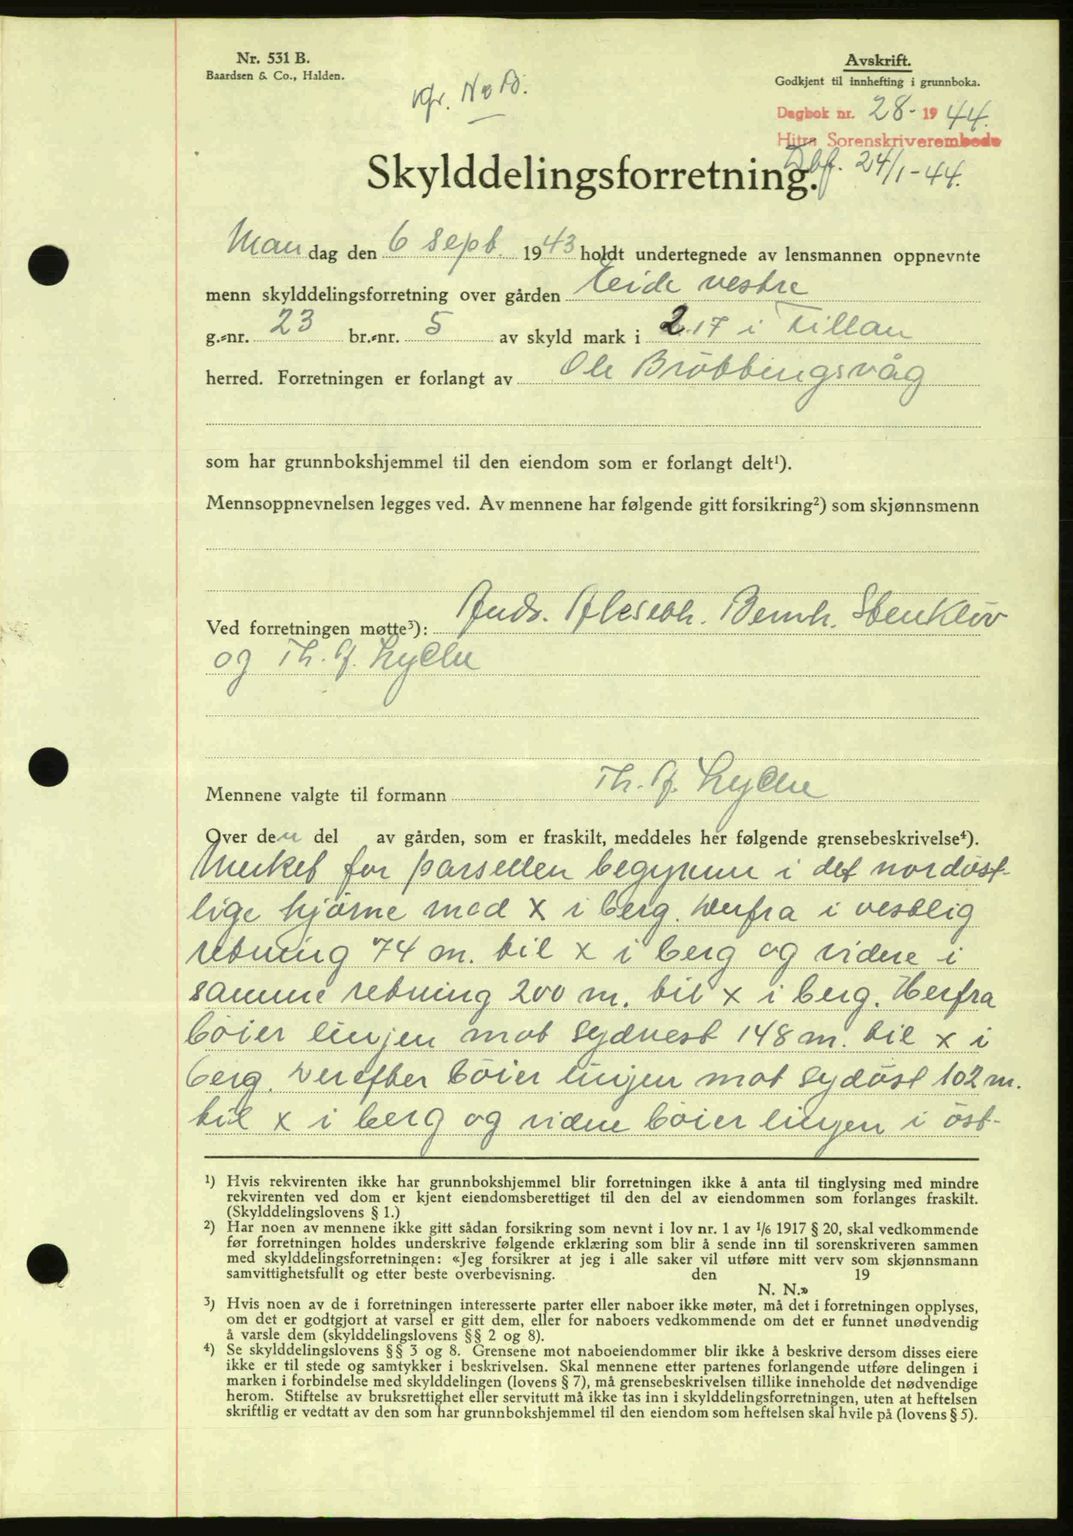 Nr. 531 B.
Baardsen & Co., Halden.
Avskrift.
Godkjent til innhefting i grunnboka.
Dagbok nr. 28 - 1944.
Hitra Sorenskriverembede
Dbf. 24/1-44.
Skylddelingsforretning.
Mandag den 6 sept. 1943 holdt undertegnede av lensmannen oppnevnte
menn skylddelingsforretning over gården Eide vestre
g.-nr. 23 br.-nr. 5 av skyld mark i 2.17 i Fillan
herred. Forretningen er forlangt av Ole Bröbbingsvåg
som har grunnbokshjemmel til den eiendom som er forlangt delt¹).
Mennsoppnevnelsen legges ved. Av mennene har følgende gitt forsikring²) som skjønnsmenn
Ved forretningen møtte³): Ands. Bernh. Stenklöv
og Th. J. Lyche
Mennene valgte til formann Th. J. Lyche
Over den del av gården, som er fraskilt, meddeles her følgende grensebeskrivelse⁴).
Merket for parsellen begynner i det nordöst-
lige hjörne med X i berg. Derfra i vestlig
retning 74 m. til x i berg og videre i
samme retning 200 m. til x i berg. Herfra
böier linjen mot sydvest 148 m. til x i
berg. Derefter böier linjen mot sydöst 102 m.
til x i berg og videre böier linjen i öst-
¹) Hvis rekvirenten ikke har grunnbokshjemmel blir forretningen ikke å anta til tinglysing med mindre
rekvirenten ved dom er kjent eiendomsberettiget til den del av eiendommen som forlanges fraskilt.
(Skylddelingslovens § 1.)
²) Har noen av mennene ikke gitt sådan forsikring som nevnt i lov nr. 1 av 1/6 1917 § 20, skal vedkommende
før forretningen holdes underskrive følgende erklæring som blir å sende inn til sorenskriveren sammen
med skylddelingsforretningen: «Jeg forsikrer at jeg i alle saker vil utføre mitt verv som skjønnsmann
samvittighetsfullt og etter beste overbevisning. den 19
N. N.»
³) Hvis noen av de i forretningen interesserte parter eller naboer ikke møter, må det i forretningen opplyses,
om det er godtgjort at varsel er gitt dem, eller for naboers vedkommende om det er funnet unødvendig
å varsle dem (skylddelingslovens §§ 2 og 8).
⁴) Se skylddelingslovens §§ 3 og 8. Grensene mot naboeiendommer blir ikke å beskrive dersom disses eiere
ikke er til stede og samtykker i beskrivelsen. Skal mennene etter partenes forlangende utføre delingen i
marken i forbindelse med skylddelingen (lovens § 7), må grensebeskrivelsen tillike inneholde det nødvendige
herom. Stiftelse av bruksrettighet eller servitutt må ikke tas inn i skylddelingsforretningen, uten at heftelsen
skriftlig er vedtatt av den som har grunnbokshjemmel til den eiendom som heftelsen skal hvile på (lovens § 5).